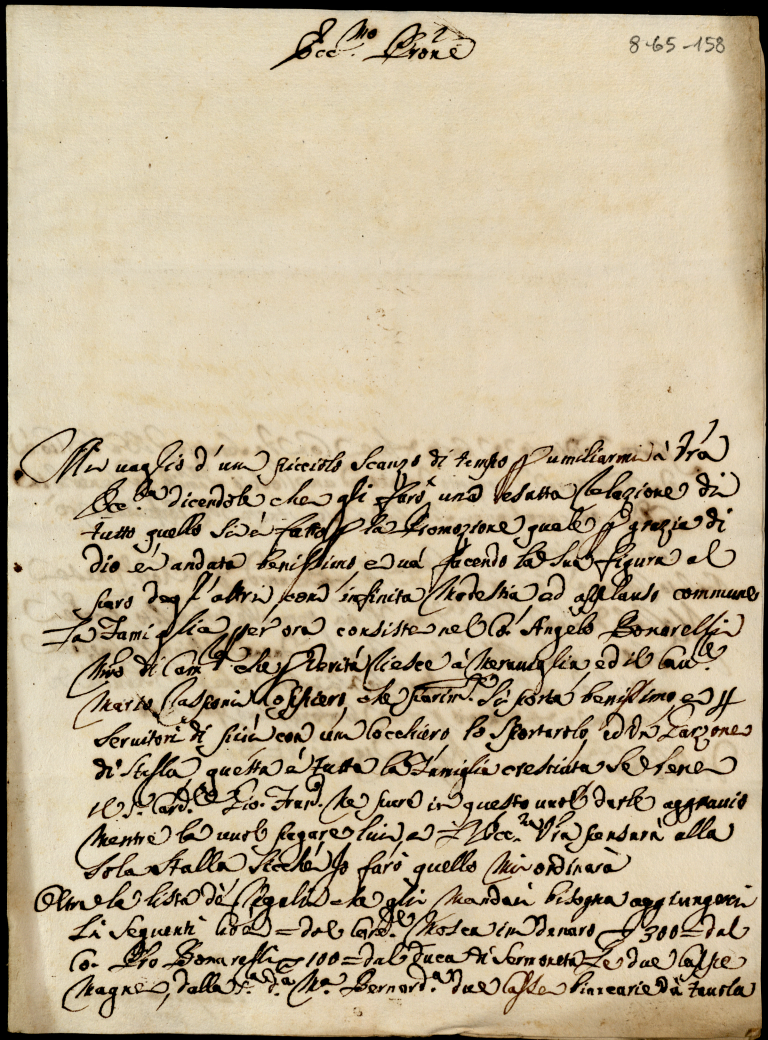 8-65-158
Ecc.mo Prone
Mi uaglio d'un picciolo scanzo di tempo p umiliarmi à Vra
Ecc.za dicendole che gli farò una esatta relazione di
tutto quello si è fatto p la Promozione quale p grazia di
dio è andata benissimo e uà facendo la sua figura al
paro degl'altri con infinita modestia ed applauso commune
La Famiglia per ora consiste nel Co: Angelo Bonarelli
Mro di Cam.a che p uerità riesce à merauiglia ed il Cau.e
Mario Coppiero, che parim.te si porta benissimo e 4
seruitori di più con un Cocchiero lo Sportarolo, ed un Garzone
di Stalla, questa è tutta la Famiglia cresciuta se bene
il S. Card.le Gio: Fran.co ne pure in questo uuole darle aggrauio
mentre la uuole pagare lui, e V. Ecc.za Vra pensarà alla
sola stalla sicche Io farò quello mi ordinarà
Oltre la lista de Regali che gli mandai bisogna aggiungerci
Li seguenti cioè = dal Card.le Mosca in denaro 300 = dal
Co: Pro Bonarelli 100 = dal Duca di Sermoneta Le due Casse
magne, dalla S.a d.a M.a Bernard.a due Casse biancarie da Tauola